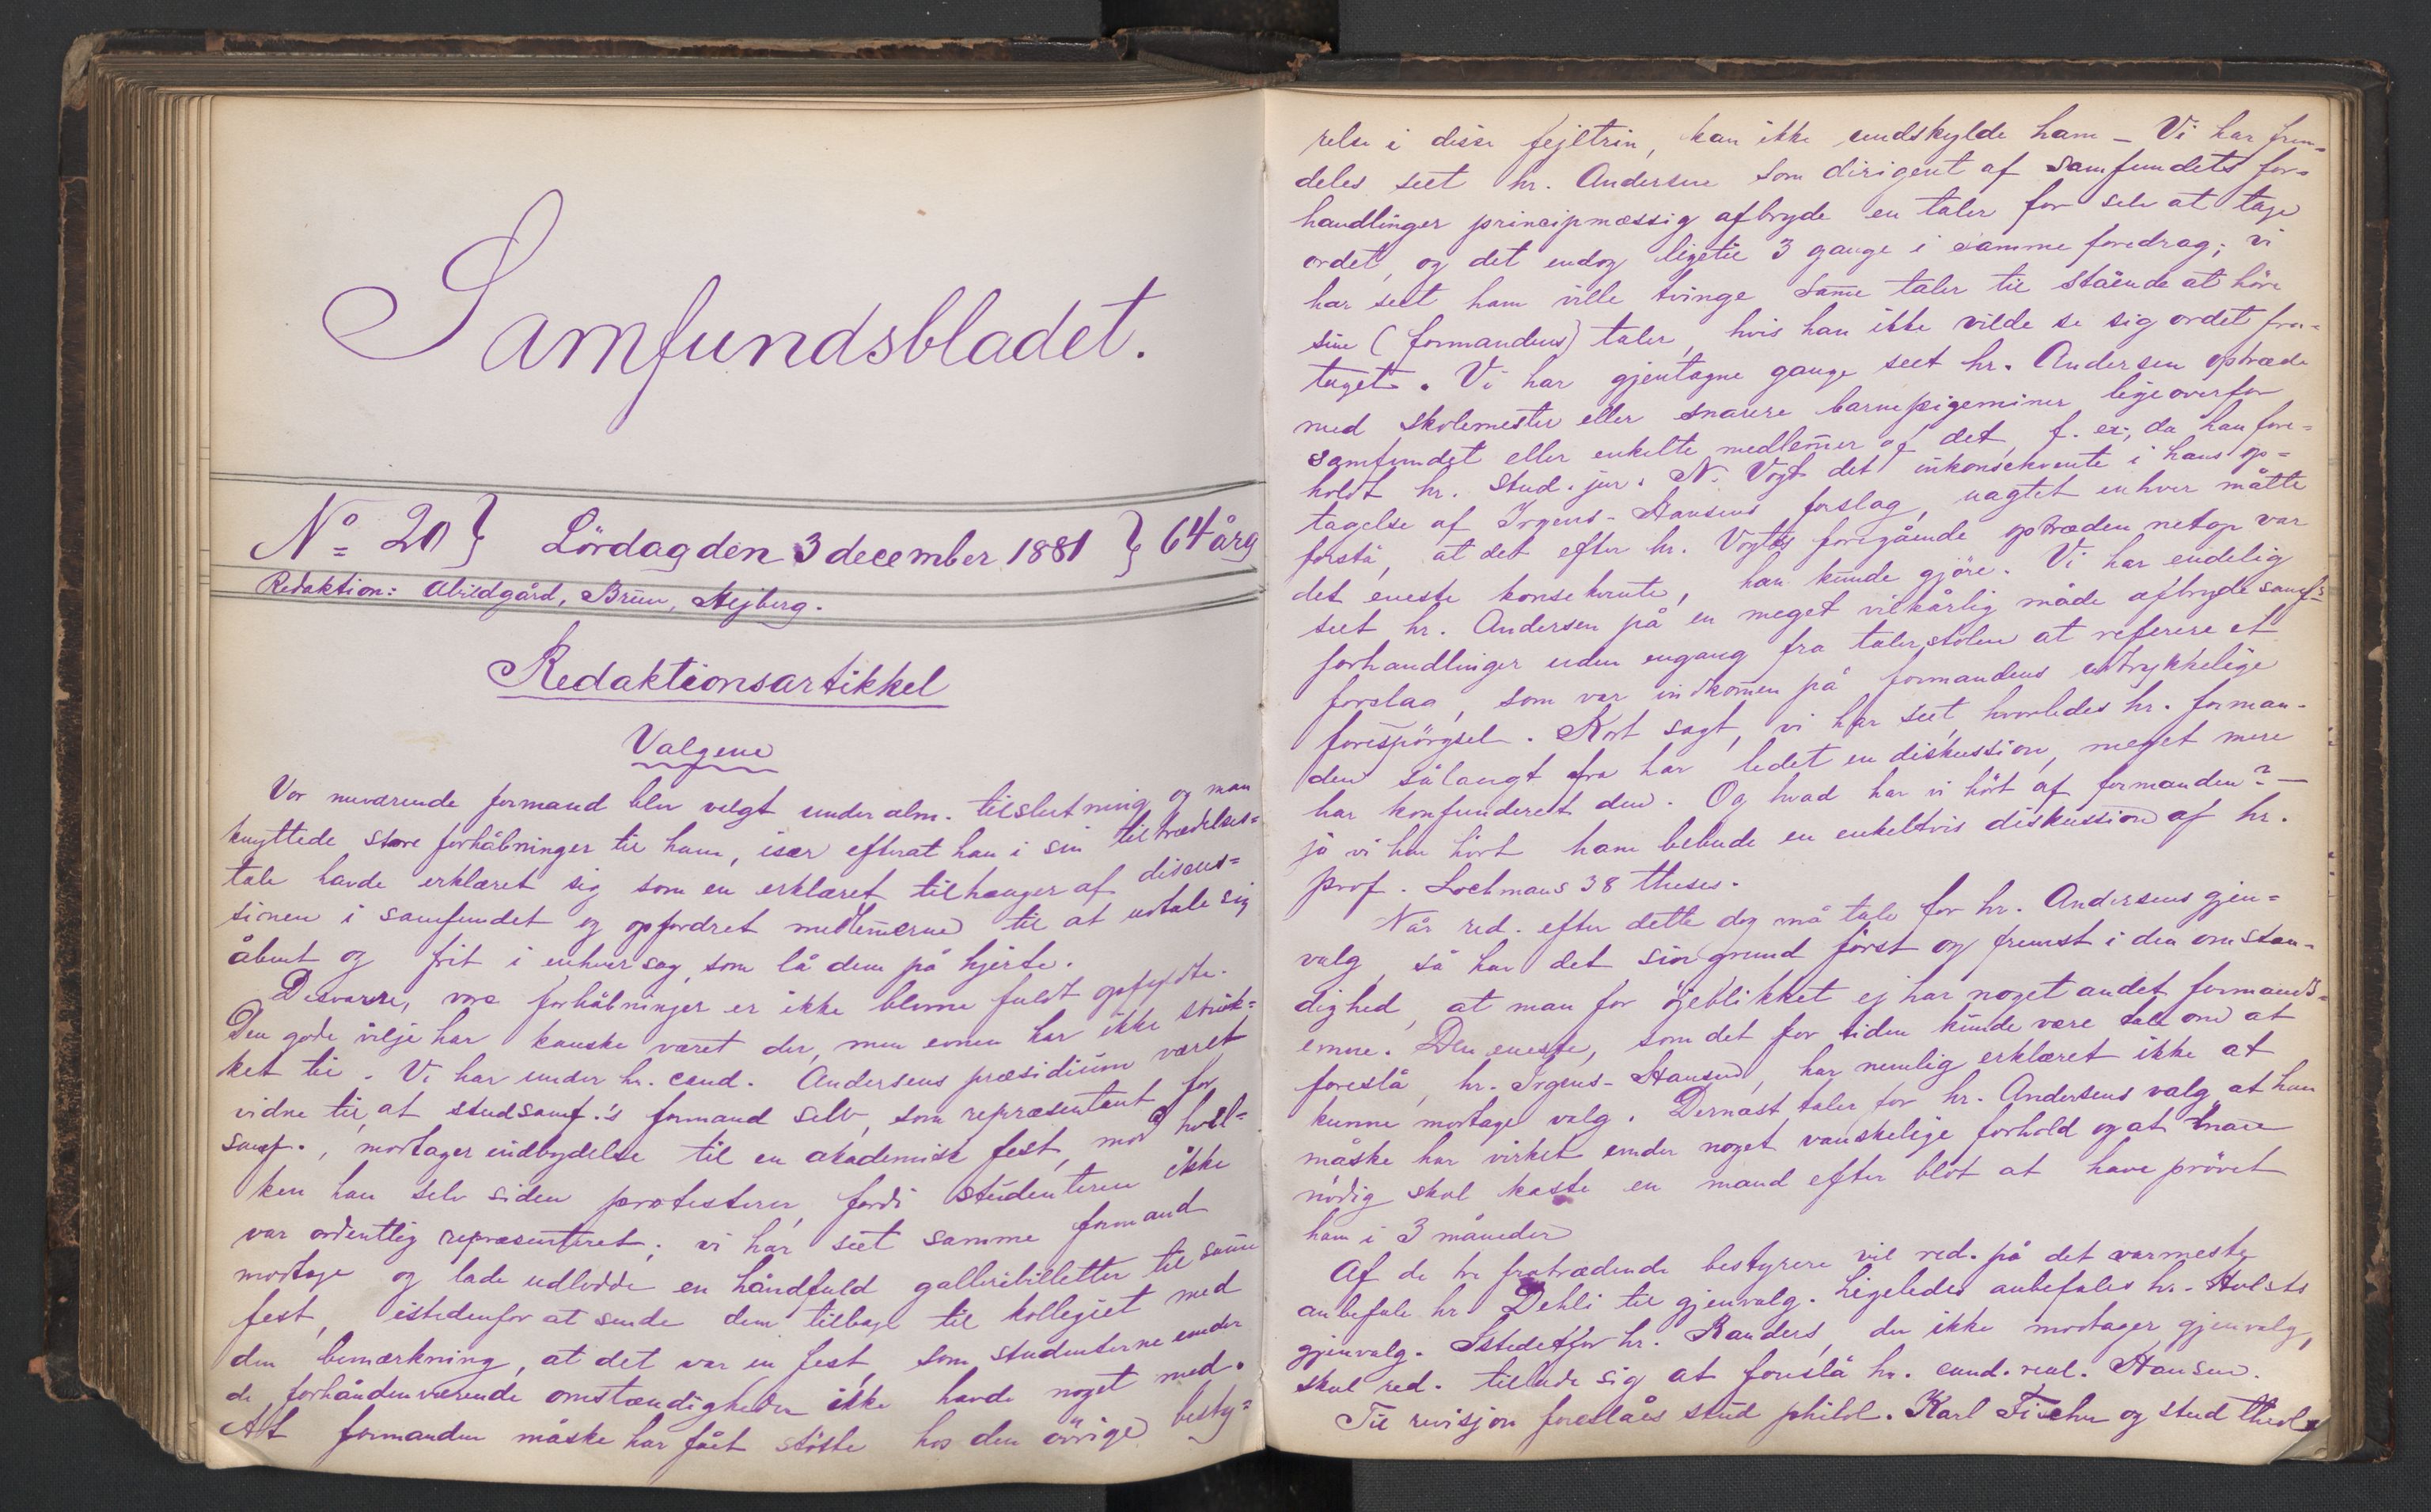 Samfundsbladet.
No 20 } Lördag den 3 december 1881 } 64 årg
Redaktion: Abildgård, Brun, Hejberg.
Redaktionsartikkel
Valgene
Vor nuværende formand blev valgt under alm. tilslutning og man
knyttede store forhåbninger til ham, især efterat han i sin tiltrædelses=
tale havde erklæret sig som en erklæret tilhænger af discus=
sionen i samfundet og opfordret medlemerne til at udtale sig
åbent og frit i enhver sag, som lå dem på hjerte.
Desværre, vore forhåbninger er ikke blevne fuldt opfyldte.
Den gode vilje har kanske været der, men evnen har ikke strük=
ket til. Vi har under hr. cand. Andersens præsidium været
vidne til, at studsamf.'s formand selv, som repræsentant for
samf., modtager indbydelse til en akademisk fest, mod hvil=
ken han selv siden protesterer, fordi studenteren ikke
var ordentlig repræsenteret; vi har seet samme formand
modtage og lade udlodde en håndfuld galleribilletter til same
fest, istedenfor at sende dem tilbage til kollegiet med
den bemærkning, at det var en fest, som studenterne under
de forhåndenværende omstændigheder ikke havde noget med.
At formanden måske har fået støtte hos den øvrige besty=
relse i disse fejltrin, kan ikke undskylde ham – Vi har frem=
deles seet hr. Andersen som dirigent af samfundets for=
handlinger principmæssig afbryde en taler for selv at tage
ordet, og det endog ligetil 3 gange i samme foredrag; vi
har seet ham ville tvinge same taler til stående at höre
sine (formandens) taler, hvis han ikke vilde se sig ordet fra=
taget. Vi har gjentagne gange seet hr. Andersen optræde
med skolemester eller snarere barnepigeminer ligeoverfor
samfundet eller enkelte medlemer af det, f. ex., da han fore=
holdt hr. stud. jur. N. Vogt det inkonsekvente i hans op=
tagelse af Irgens-Hansens forslag, uagtet enhver måtte
forstå, at det efter hr. Vogts foregående optræden netop var
det eneste konsekvente, han kunde gjöre. Vi har endelig
seet hr. Andersen på en meget vilkårlig måde afbryde samf's
forhandlinger uden engang fra talerstolen at referere et
forslag, som var indkomen på formandens udtrykkelige
forespörgsel. Kort sagt, vi har seet, hvorledes hr. forman-
den sålangt fra har ledet en diskussion, meget mere
har konfunderet den. Og hvad har vi hört af formanden? –
jo vi har hört ham bebude en enkeltvis diskussion af hr.
prof. Lochmans 38 theses.
Når red. efter dette dog må tale for hr. Andersens gjen=
valg, så har det sin grund först og fremst i den omstæn-
dighed, at man for öjeblikket ej har noget andet formands=
emne. Den eneste, som det for tiden kunde være tale om at
foreslå, hr. Irgens-Hansen, har nemlig erklæret ikke at
kunne modtage valg. Dernæst taler for hr. Andersens valg, at han
måske har virket under noget vanskelige forhold og at man
nödig skal kaste en mand efter blot at have prövet
ham i 3 måneder
Af de tre fratrædende bestyrere vil red. på det varmeste
anbefale hr. Dehli til gjenvalg. Ligeledes anbefales hr. Holsts
gjenvalg. Istedetfor hr. Randers, der ikke modtager gjenvalg,
skal red. tillade sig at foreslå hr. cand. real. Hansen.
Til revisjon foreslåes stud philol. Karl Fischer og stud theol